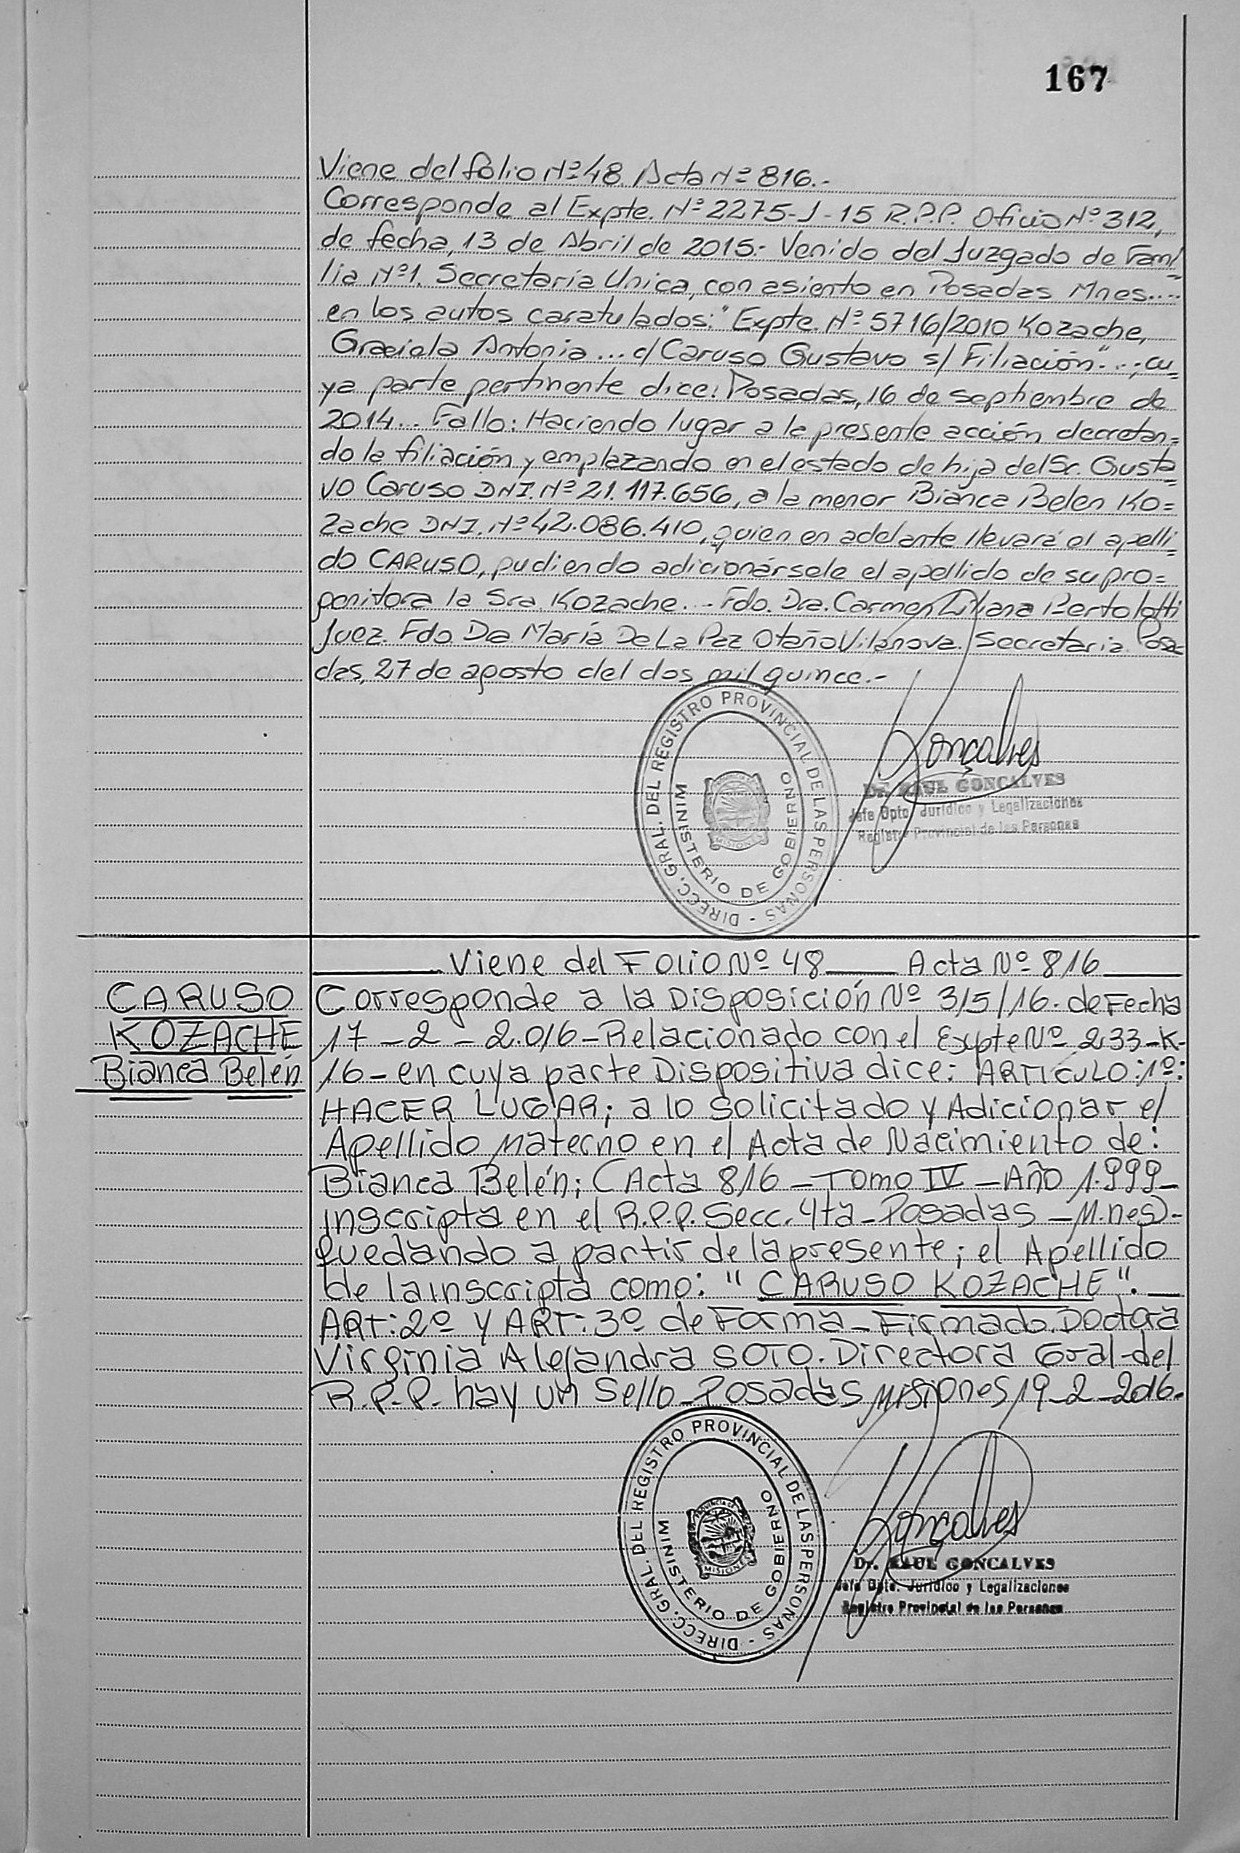 167
Viene del folio Nº 48. Acta Nº 816.-
Corresponde al Expte. Nº 2275-J-15 R.P.P. Oficio Nº 312,
de fecha, 13 de Abril de 2015.- Venido del Juzgado de Fami=
lia Nº1. Secretaría Unica, con asiento en Posadas Mnes....
en los autos caratulados: "Expte. Nº 5716/2010 Kozache,
Graciela Antonia... c/ Caruso Gustavo s/ Filiación"...; cu=
ya parte pertinente dice: Posadas, 16 de septiembre de
2014... Fallo: Haciendo lugar a la presente acción decretan=
do la filiación y emplazando en el estado de hija del Sr. Gusta
vo Caruso DNI. Nº 21.117.656, a la menor Bianca Belen Ko=
zache DNI. Nº 42.086.410, quien en adelante llevará el apelli=
do CARUSO, pudiendo adicionársele el apellido de su pro=
genitora la Sra. Kozache... Fdo. Dra. Carmen Liliana Bertolotti
Juez. Fdo. Dra María De La Paz Otaño Vilanova. Secretaria. Posa
das, 27 de agosto del dos mil quince.-
DIRECC. GRAL. DEL REGISTRO PROVINCIAL DE LAS PERSONAS -
MINISTERIO DE GOBIERNO
Gonçalves
Dr. RAUL GONCALVES
Jefe Dpto. Jurídico y Legalizaciones
Registro Provincial de las Personas
Viene del Folio Nº 48 Acta Nº 816
CARUSO
KOZACHE
Bianca Belén
Corresponde a la Disposición Nº 315/16. de Fecha
17 - 2 - 2.016 - Relacionado con el Expte Nº 233-K-
16 - en cuya parte Dispositiva dice: ARTÍCULO: 1º:
HACER LUGAR; a lo solicitado y Adicionar el
Apellido Materno en el Acta de Nacimiento de:
Bianca Belén; (Acta 816 - Tomo IV - Año 1.999 -
inscripta en el R.P.P. Secc. 4ta - Posadas - M.nes) -
quedando a partir de la presente; el Apellido
de la inscripta como: "CARUSO KOZACHE".
ART: 2º Y ART: 3º de Forma - Firmado. Doctora
Virginia Alejandra SOTO. Directora Gral. del
R.P.P. hay un Sello - Posadas Misiones 19-2-2016.
DIRECC. GRAL. DEL REGISTRO PROVINCIAL DE LAS PERSONAS -
MINISTERIO DE GOBIERNO
PROVINCIA DE
MISIONES
Gonçalves
Dr. RAUL GONCALVES
Jefe Dpto. Jurídico y Legalizaciones
Registro Provincial de las Personas